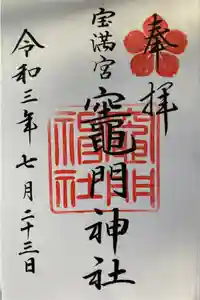 奉拝
宝満宮
竈門神社
令和三年七月二十三日
竈門神社